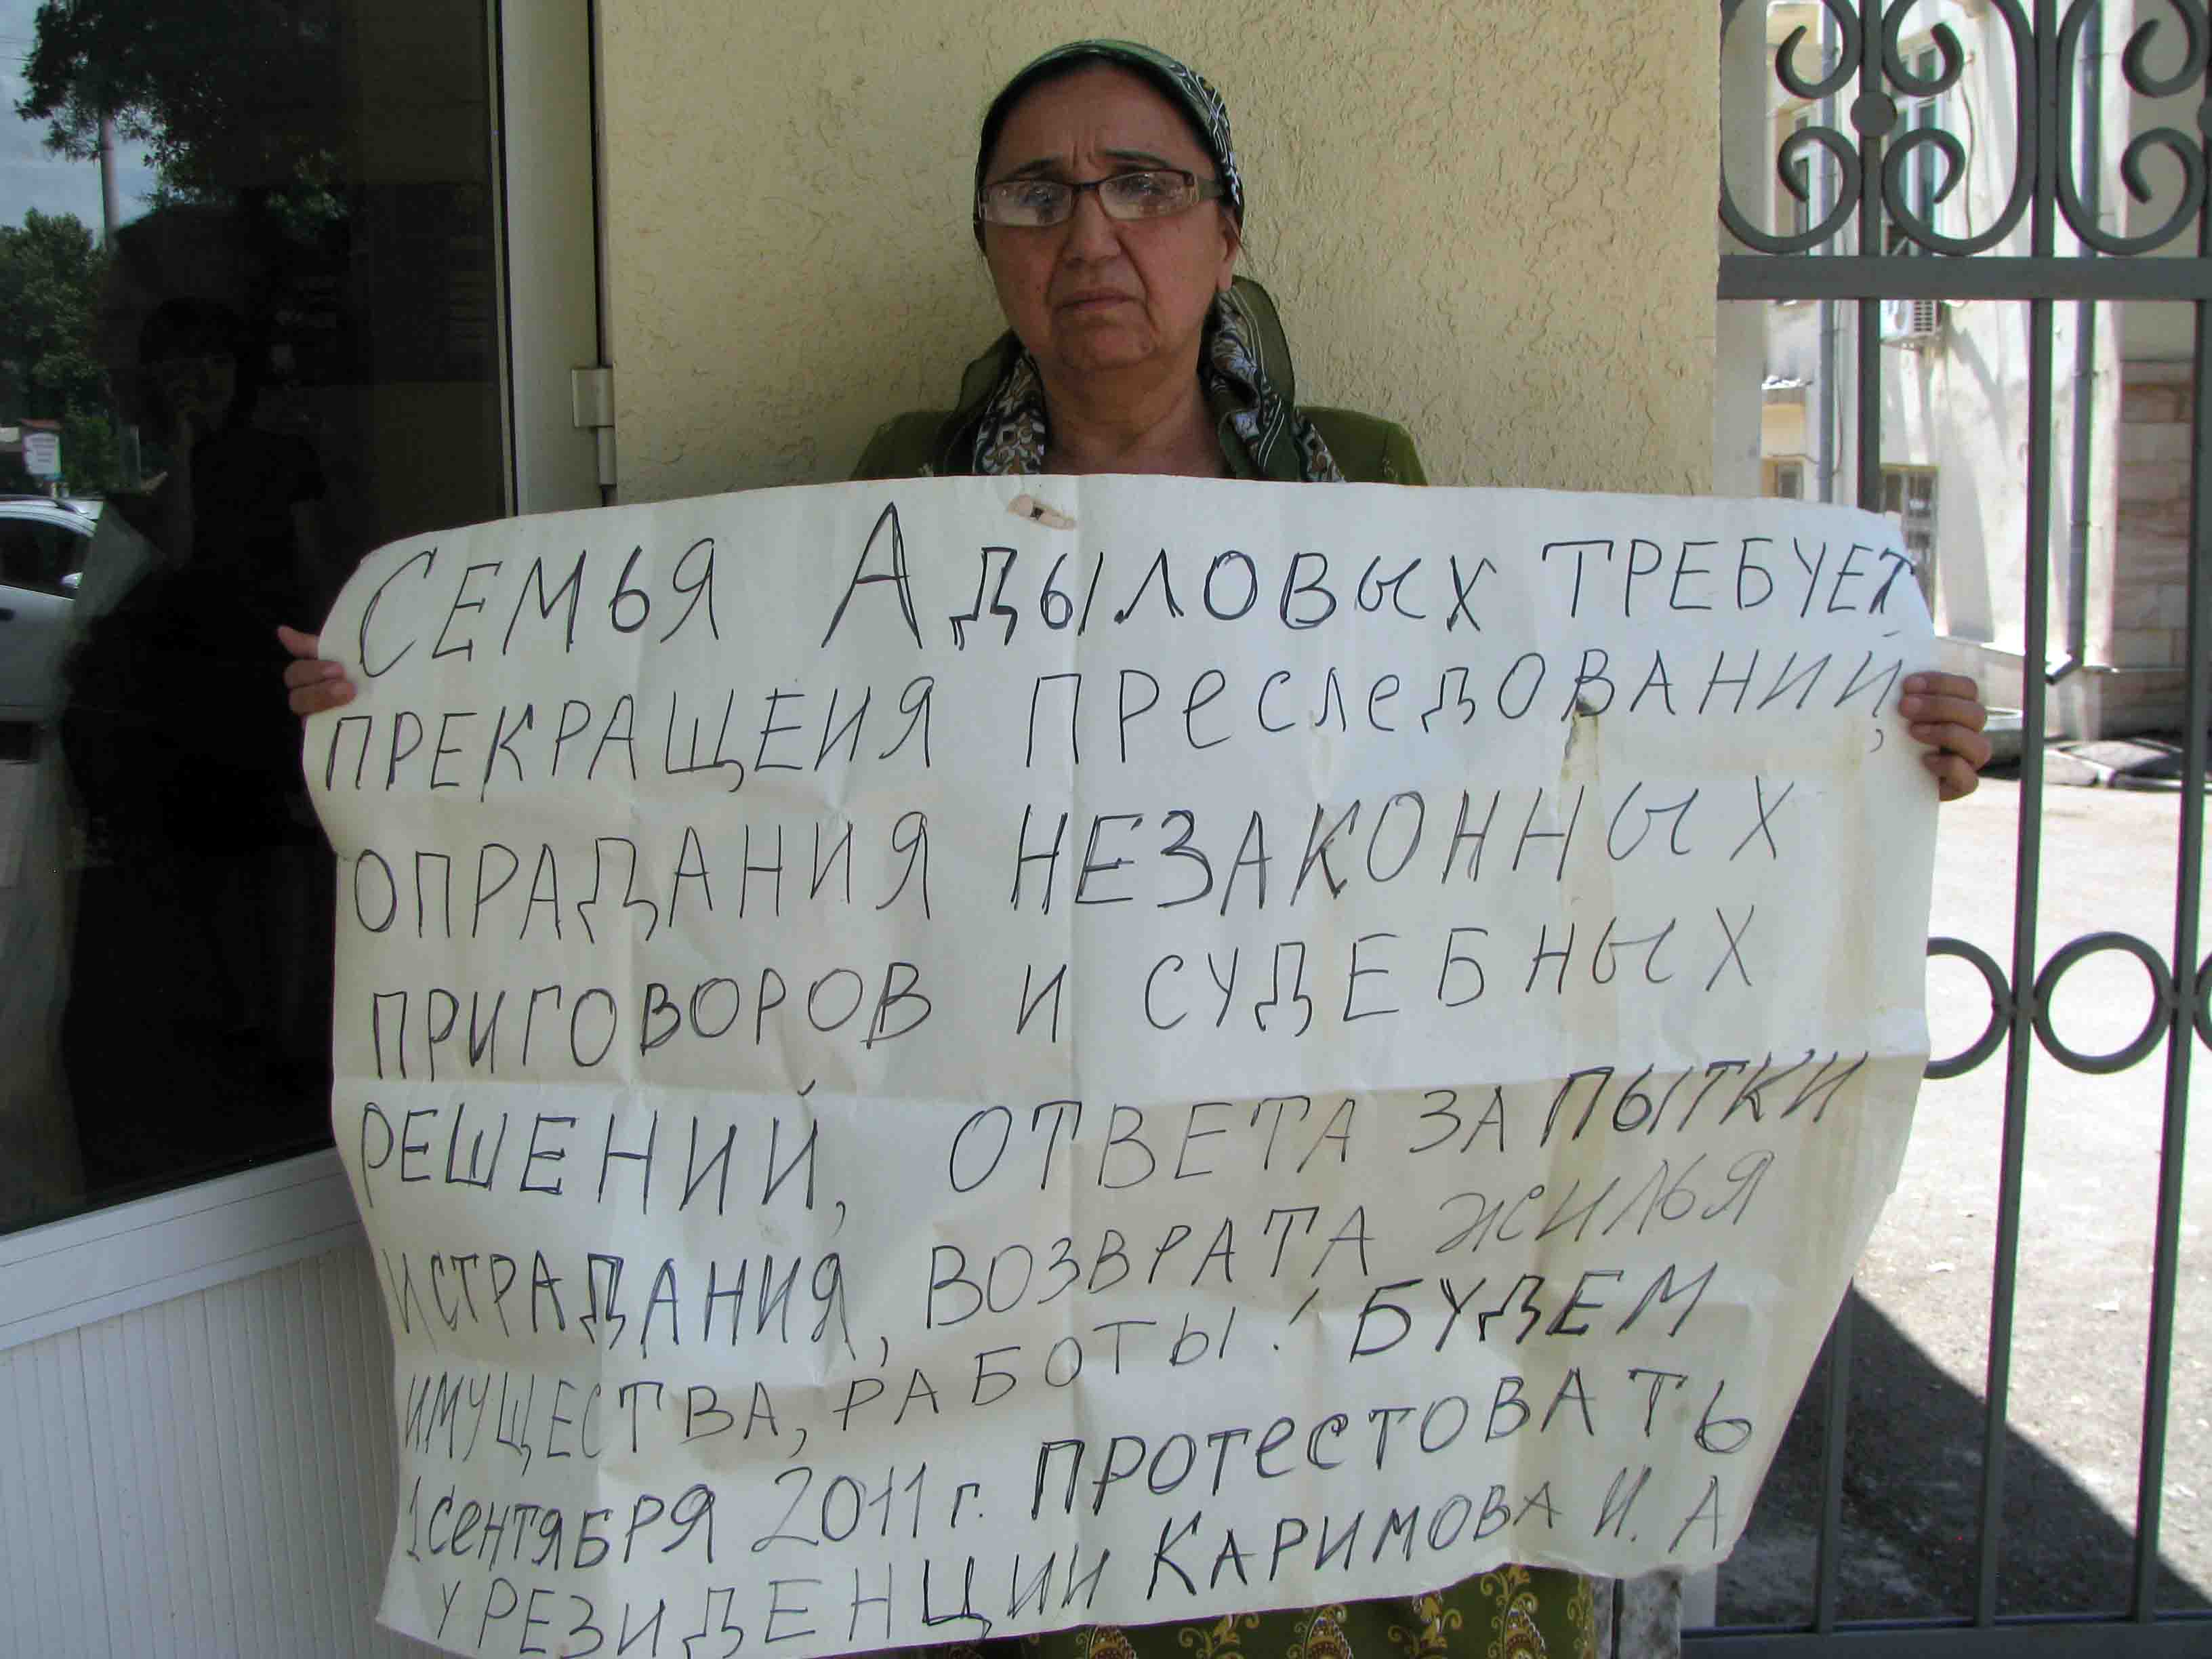 СЕМЬЯ АДЫЛОВЫХ ТРЕБУЕТ
ПРЕКРАЩЕИЯ ПРеслеДОВАНИЙ,
ОПРАДАНИЯ НЕЗАКОННЫХ
ПРИГОВОРОВ И СУДЕБНЫХ
РЕШЕНИЙ, ОТВЕТА ЗА ПЫТКИ
И СТРАДАНИЯ, ВОЗВРАТА ЖИЛЬЯ
ИМУЩЕСТВА, РАБОТЫ! БУДЕМ
1 сентЯБРЯ 2011 г. ПРОТеСТОВАТЬ
У РЕЗИДЕНЦИИ КАРИМОВА И. А